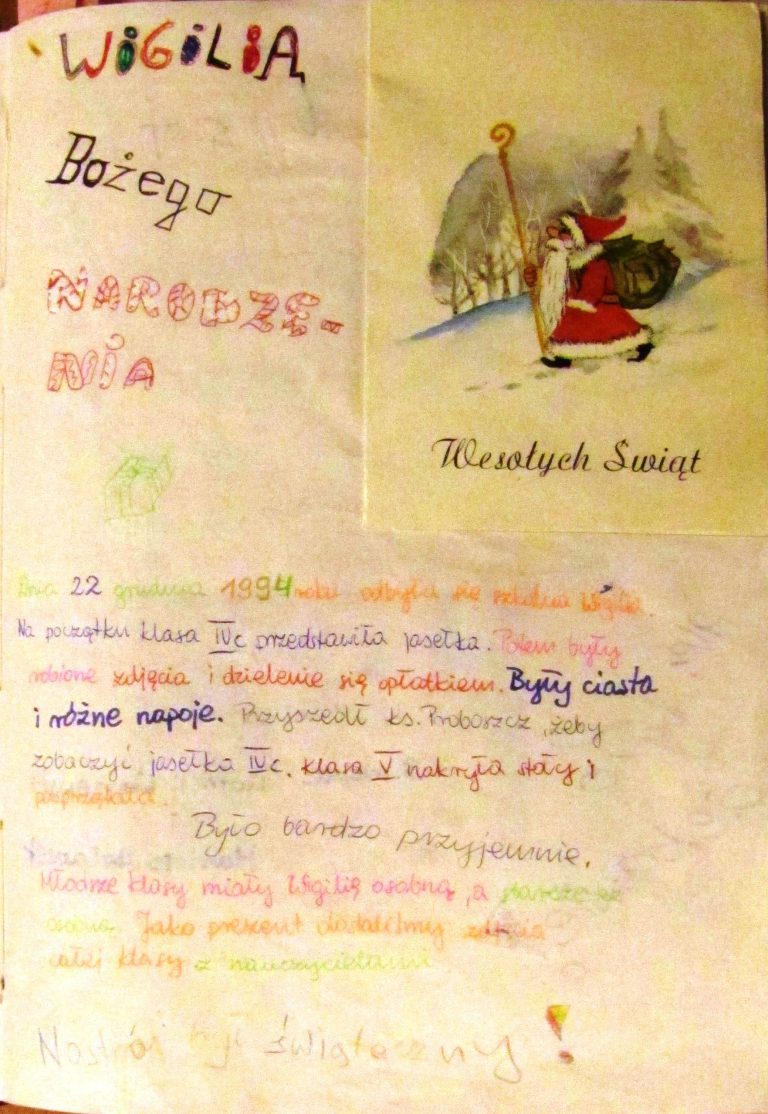 WIGILIA
Bożego
NARODZE-
NIA
Wesołych Świąt
Dnia 22 grudnia 1994 roku odbyła się szkolna Wigilia.
Na początku klasa IVc przedstawiła jasełka. Potem były
robione zdjęcia i dzielenie się opłatkiem. Były ciasta
i różne napoje. Przyszedł ks. Proboszcz, żeby
zobaczyć jasełka IVc. klasa V nakryła stoły i
posprzątała.
Było bardzo przyjemnie.
Młodsze klasy miały Wigilię osobną, a starsze
osobną. Jako prezent dostaliśmy zdjęcia
całej klasy z nauczycielami
Nastrój był świąteczny!